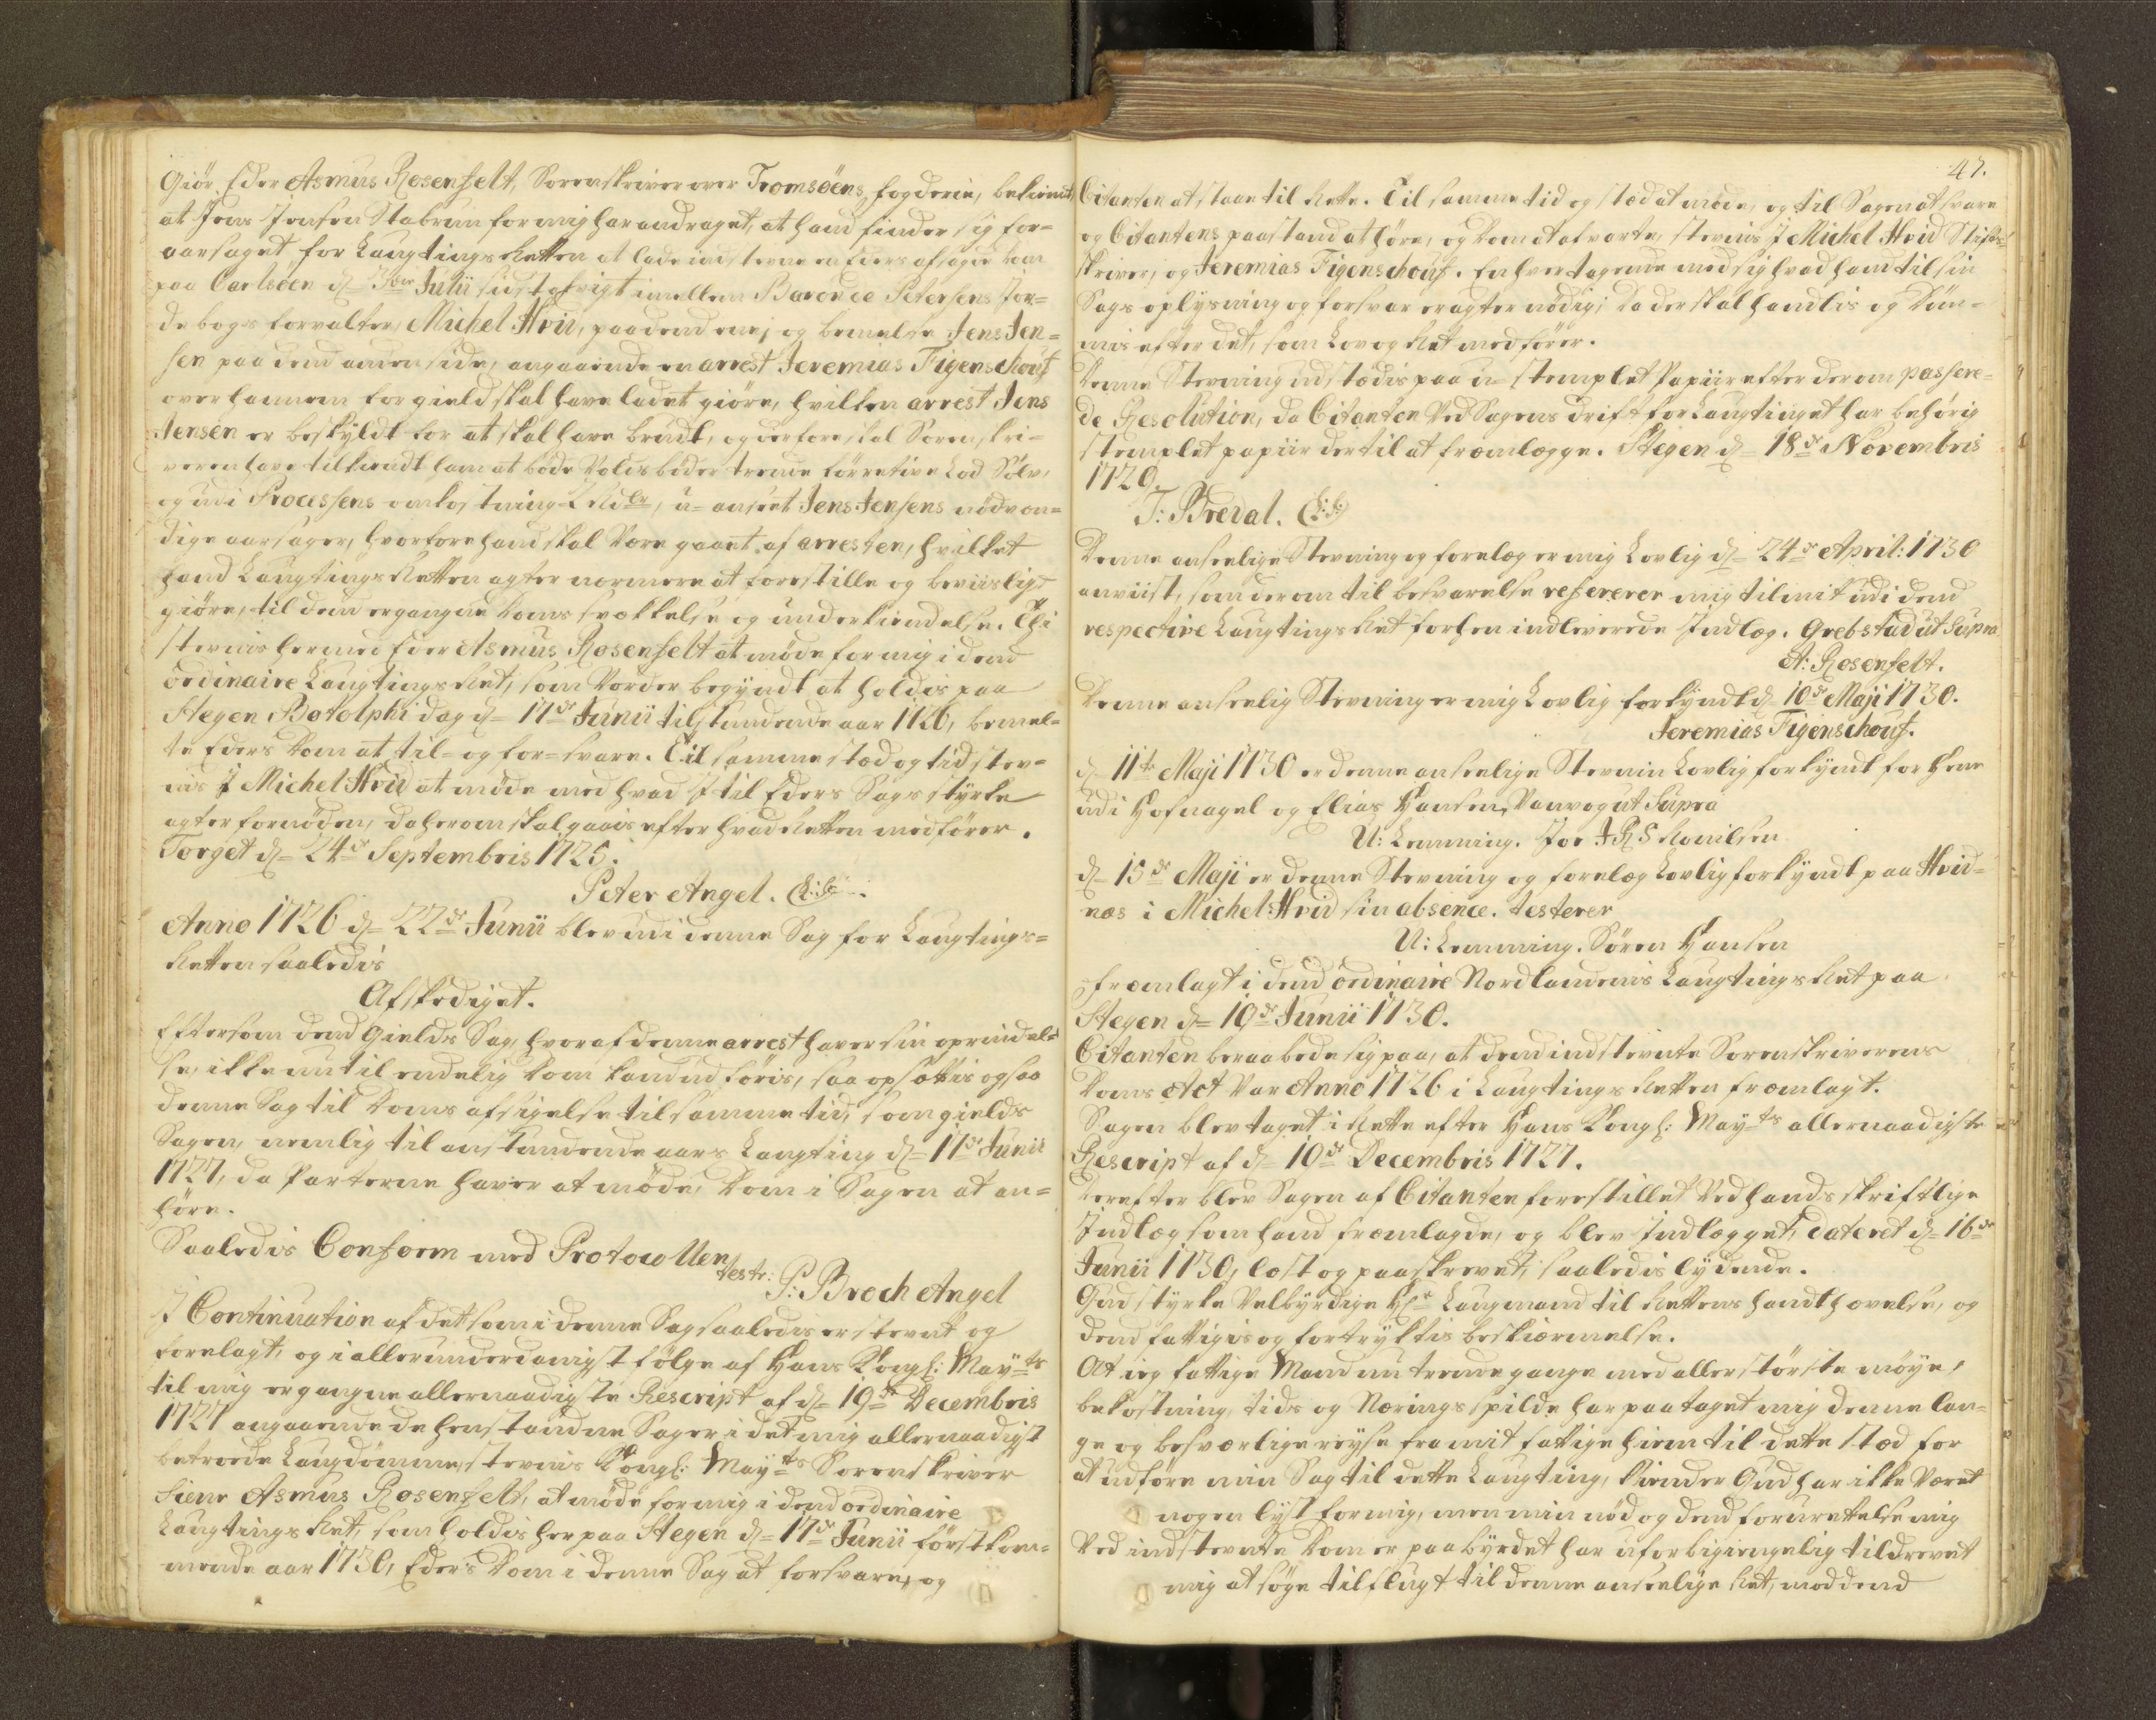 Giör Eder Asmus Rosenfelt, Sorenskriver over Tromsöens fogderie, bekiendt,
at Jens Jensen Stabrun for mig har andraget, at hand finder sig for=
aarsaget for Laugtings Retten at lade indstevne en Eders afsagde Dom
paa Carlsöen d= Julii sidst afvigt imellem Baron de Petersens Jor=
debogs forvalter, Michel Hvid, paa dend ene, og bemelte Jens Jen=
sen paa dend anden side, angaaende en arrest Jeremias Figenschouf
over hannem for gield skal have ladet giöre, hvilken arrest Jens
Jensen er beskyldt for at skal have brudt, og derfore skal Sorenskri=
veren have tilkiendt ham at böde Voldsböder trende förretive Lod Sölv,
og udi Processens omkostning Rdlr, u=anseet Jens Jensens nödven=
dige aarsager, hvorfore hand skal være gaaet af arresten, hvilket
hand Laugtings Retten agter nærmere at forestille og beviislig
giöre, til dend ergangne Doms svekkelse og underkiendelse. Thi
stevnis hermed Eder Asmus Rosenfelt at möde for mig i dend
ordinaire Laugtings Ret, som vorder begyndt at holdis paa
Stegen Botolphi dag d= 17de Junii tilstundende aar 1726, bemel=
te Eders Dom at til= og for=svare. Til samme stæd og tid stev=
nis I Michel Hvid at möde med hvad I til Eders Sags styrke
agter fornöden, da herom skal gaais efter hvad Retten medförer.
Torget d= 24de Septembris 1725.
Peter Angel. (L:S:)
Anno 1726 d= 22de Junii blev udi denne Sag for Laugtings=
Retten saaledis
Afskediget.
Eftersom dend Gields Sag, hvoraf denne arrest haver sin oprindel=
se, ikke nu til endelig Dom kand udföris, saa opsættis ogsaa
denne Sag til Doms afsigelse til samme tid, som gields
Sagen, nemlig til anstundende aars Laugting d= 17de Junii
1727, da Parterne haver at möde, Dom i Sagen at an=
höre.
Saaledis Conform med Protocollen
test: P: Broch Angel
I Continuation af det som i denne Sag saaledis er stevnt og
forelagt, og i allerunderdanigst fölge af Hans Kongl: Mayts
til mig ergangne allernaadigste Rescript af d= 19de Decembris
1727 angaaende de henstandne Sager i det mig allernaadigst
betroede Laugdömme, stevnis Kongl: Mayts Sorenskriver
Siear Asmus Rosenfelt, at möde for mig i dend ordinaire
Laugtings Ret, som holdis her paa Stegen d= 17de Junii förstkom=
mende aar 1730, Eders Dom i denne Sag at forsvare, og
47.
Citanten at staae til Rette. Til samme tid og stæd at möde, og til Sagen at svare
og Citantens paastand at höre, og Dom at afvarte, stevnis I Michel Hvid Stifts=
skriver, og Jeremias Figenschouf. En hver tagende med sig hvad hand til sin
Sags oplysning og forsvar eragter nödig; Da der skal handlis og Döm=
mis efter det, som Lov og Ret medförer.
Denne Stevning udstædis paa u=stemplet Papiir efter derom passere=
de Resolution, da Citanten ved Sagens drift for Laugtinget har behörig
stemplet papiir dertil at fremlægge. Stegen d= 18de Novembris
1729.
T: Breval. (L:S:)
Denne anseelige Stevning og forelæg er mig Lovlig d= 24de April: 1730
anviist, som derom til besvarelse refererer mig til mit udi dend
respective Laugtings Ret forhen indleverede Indlæg. Grebstad ut Supra
A: Rosenfelt.
Denne anseelig Stevning er mig Lovlig forkyndt d= 10de Maji 1730.
Jeremias Figenschouf.
d= 11te Maji 1730 er denne anseelige Stevnin Lovlig forkyndt for
udi Hofnagel og Elias Hansen, ut Supra
U: Lemming.
d= 15de Maji er denne Stevning og forelæg Lovlig forkyndt paa Hvid=
næs i Michel Hvid sin absence. testerer
U: Lemming. Sören Hansen
fremlagt i dend ordinaire Nordlandenis Laugtings Ret paa
Stegen d= 19de Junii 1730.
Citanten beraabede sig paa, at dend indstevnte Sorenskriverens
Doms Act var Anno 1726 i Laugtings Retten fremlagt.
Sagen blev taget i Rette efter Hans Kongl: Mayts allernaadigste
Rescript af d= 19de Decembris 1727.
Derefter blev Sagen af Citanten forestillet ved hands skriftlige
Indlæg som hand fremlagde, og blev Indlægget, dateret d= 16de
Junii 1730, læst og paaskrevet, saaledis lydende.
Gud styrke Velbyrdige Hr Laugmand til Rettens handthævelse, og
dend fattigis og fortryktis beskiermelse.
At ieg fattige Mand nu trende gange med aller störste möye,
bekostning, tids og Nærings spilde har paataget mig denne lan=
ge og besværlige reyse fra mit fattige hiem til dette stæd for
at udföre min Sag til dette Laugting, kiender Gud har ikke været
nogen lyst for mig, men min nöd og dend forurettelse mig
ved indstevnte Dom er paabyrdet har uforbigiengelig tildrevet
mig at söge tilflugt til denne anseelige Ret, mod dend